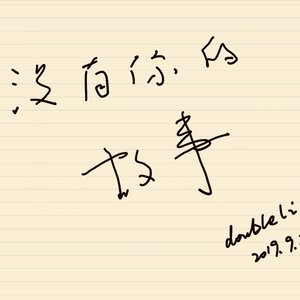 没有你的
故事
doubleli
2019.9.